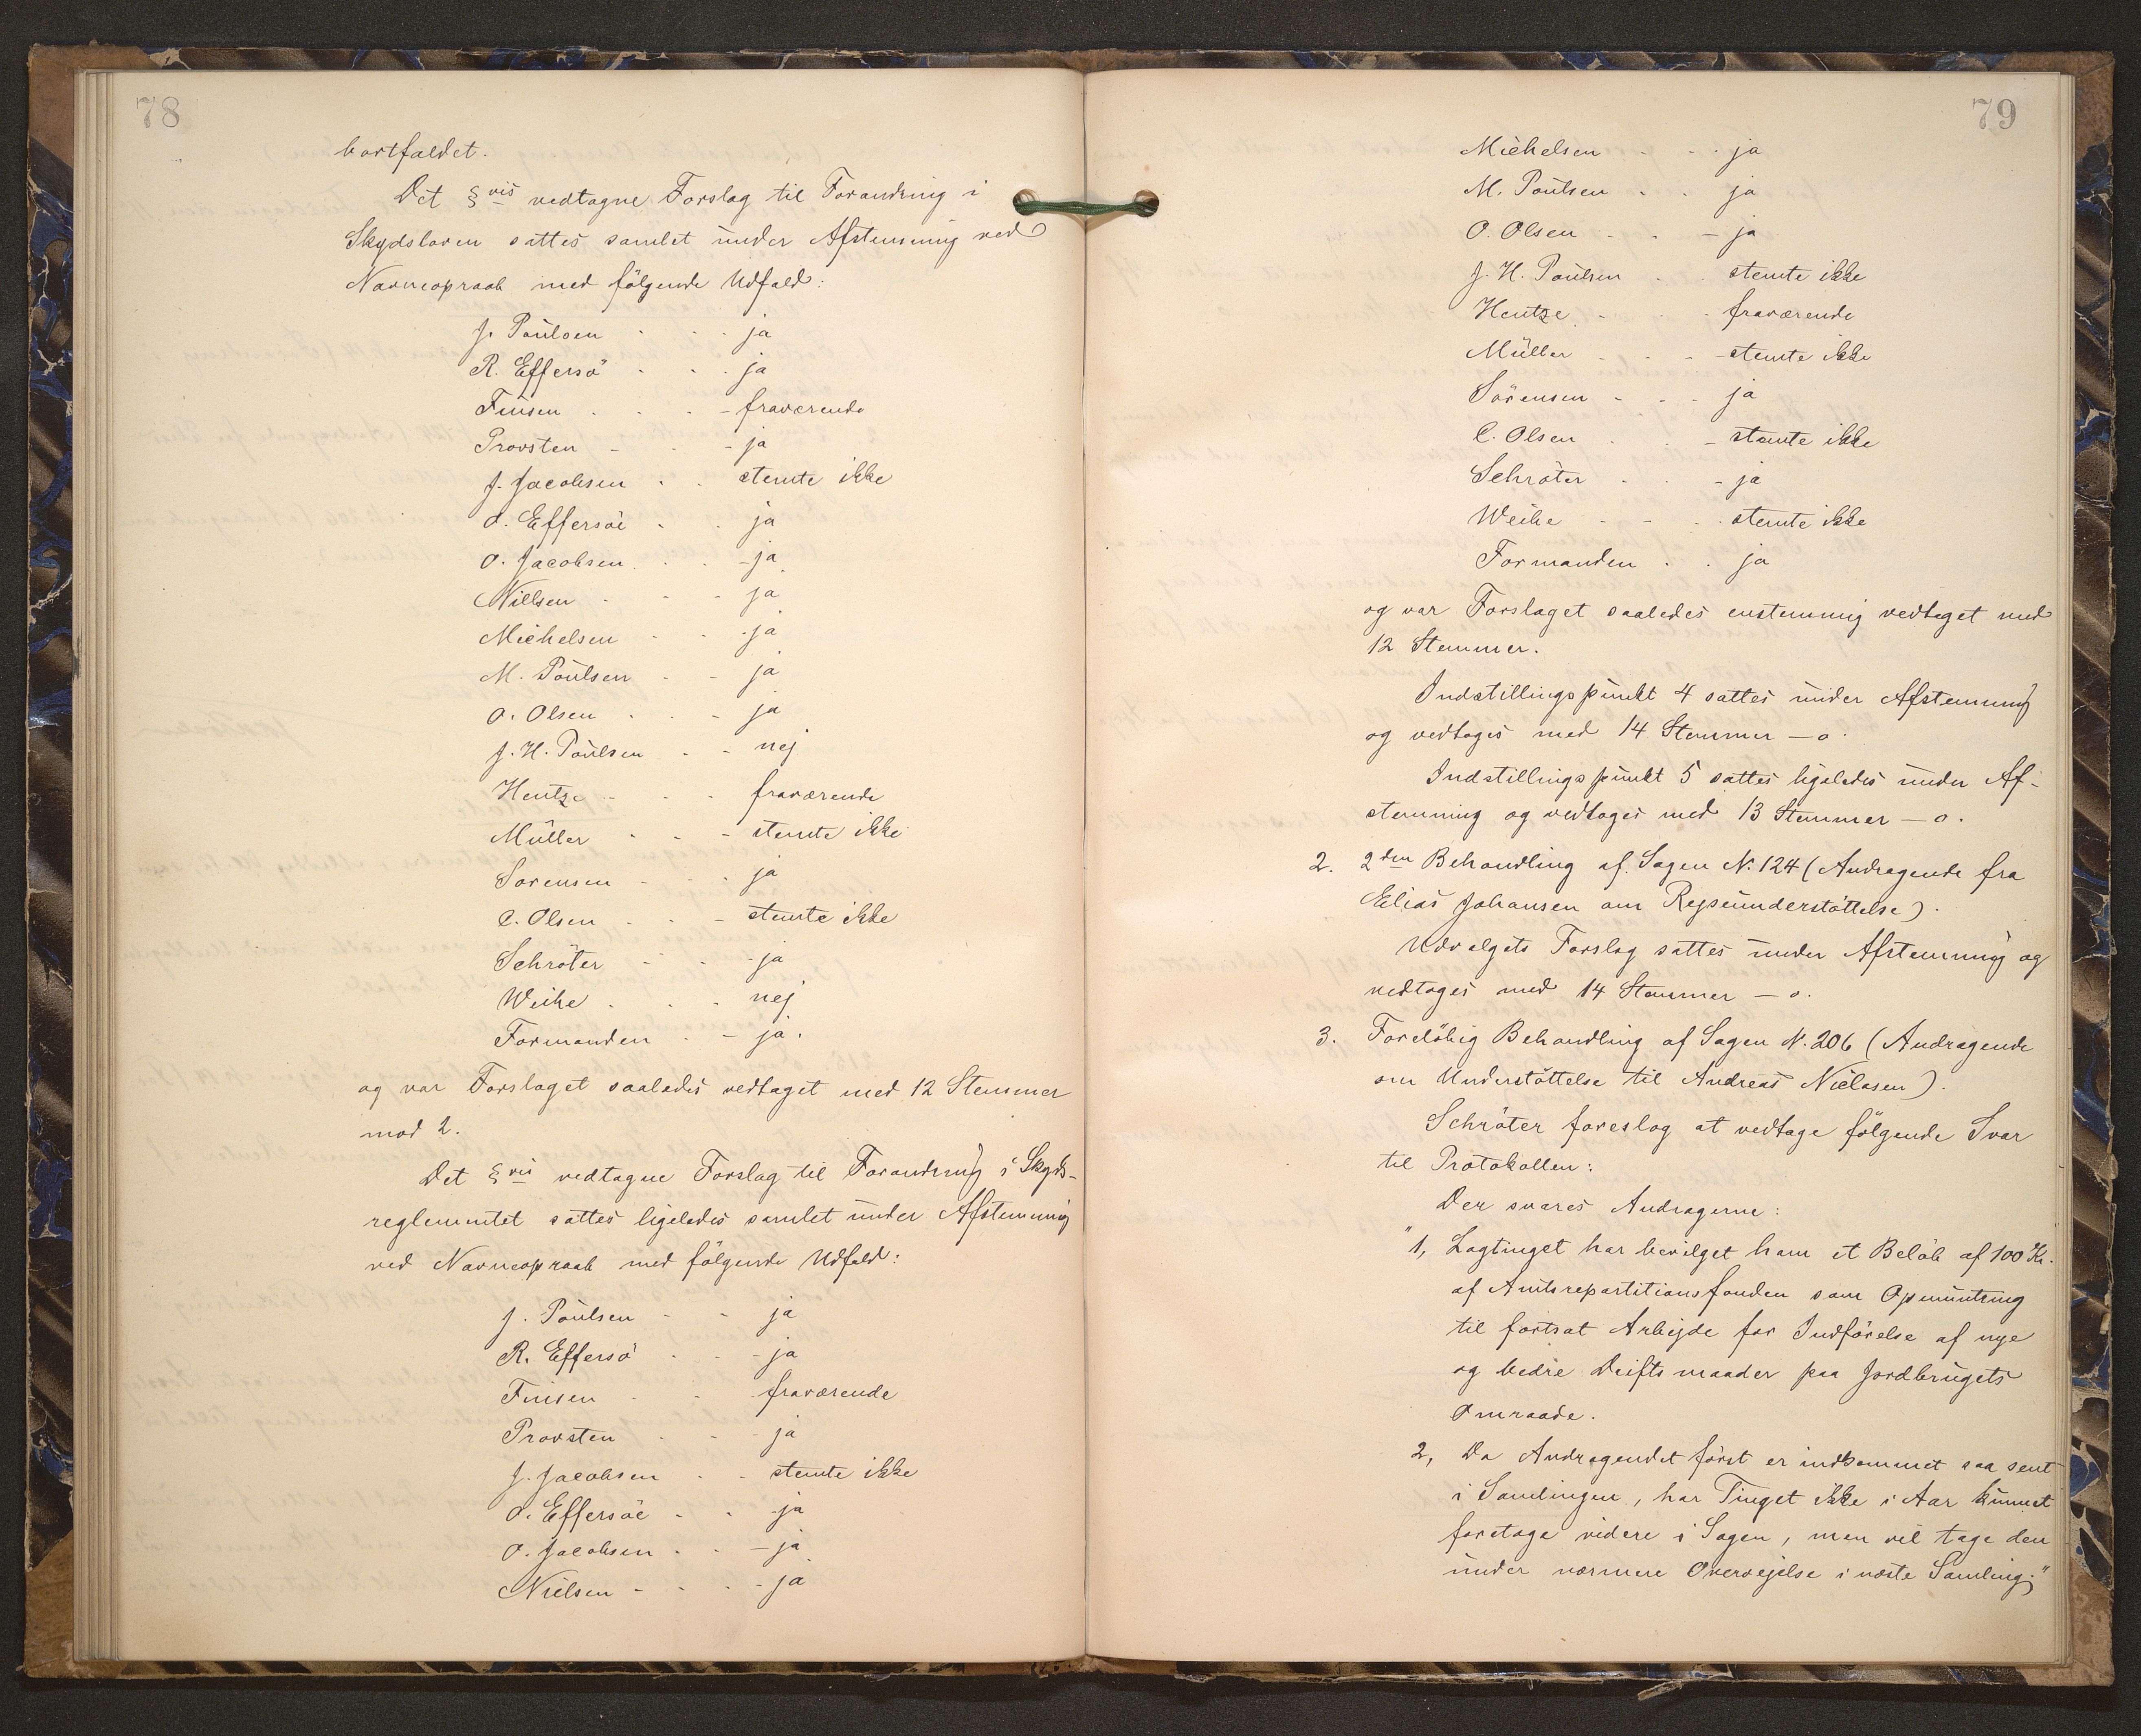 78
bortfaldet.
Det §vis vedtagne Forslag til Forandring i
Skydsloven sattes samlet under Afstemning ved
Navneopraab med følgende Udfald:
J. Poulsen - - - ja
R. Effersö - - - ja
Finsen - - - fraværende
Provsten - - - ja
J. Jacobsen - - stemte ikke
O. Effersöe - - ja
O. Jacobsen - - ja
Nielsen - - - ja
Michelsen - - ja
M. Poulsen - - ja
O. Olsen - - - ja
J. H. Poulsen - - nej
Hentze - - - fraværende
Müller - - - stemte ikke
Sorensen - - - ja
C. Olsen - - - stemte ikke
Schröter - - - ja
Weihe - - - nej
Formanden - - ja.
og var Forslaget saaledes vedtaget med 12 Stemmer
mod 2.
Det §vis vedtagne Forslag til Forandring i Skyds-
reglementet sattes ligeledes samlet under Afstemning
ved Navneopraab med følgende Udfald:
J. Poulsen - - ja
R. Effersö - - - ja
Finsen - - fraværende
Provsten - - - ja
J. Jacobsen - - stemte ikke
O. Effersöe - - ja
O. Jacobsen - - - ja
Nielsen - - - - ja
79
Michelsen - - - ja
M. Poulsen - - ja
O. Olsen - - - ja
J. H. Poulsen - - stemte ikke
Hentze - - - fraværende
Müller - - - stemte ikke
Sörensen - - - ja
C. Olsen - - - stemte ikke
Schröter - - - ja
Weihe - - - stemte ikke
Formanden - - ja
og var Forslaget saaledes enstemmig vedtaget med
12 Stemmer.
Indstillingspunkt 4 sattes under Afstemning
og vedtoges med 14 Stemmer — o.
Indstillingspunkt 5 sattes ligeledes under Af-
stemning og vedtoges med 13 Stemmer — o.
2. 2den Behandling af Sagen N. 124 (Andragende fra
Elias Johansen om Rejseunderstöttelse).
Udvalgets Forslag sattes under Afstemning og
vedtoges med 14 Stemmer — o.
3. Forelöbig Behandling af Sagen N. 206 (Andragende
om Understöttelse til Andreas Niclasen).
Schröter foreslog at vedtage fölgende Svar
til Protokollen:
Der svares Andragerne:
"1, Lagtinget har bevilget ham et Belöb af 100 Kr.
af Amtsrepartitionsfonden som Opmuntring
til fortsat Arbejde for Indförelse af nye
og bedre Driftsmaader paa Jordbrugets
Omraade.
2, Da Andragendet först er indkommet saa sent
i Samlingen, har Tinget ikke i Aar kunnet
foretage videre i Sagen, men vil tage den
under nærmere Overvejelse i næste Samling;"